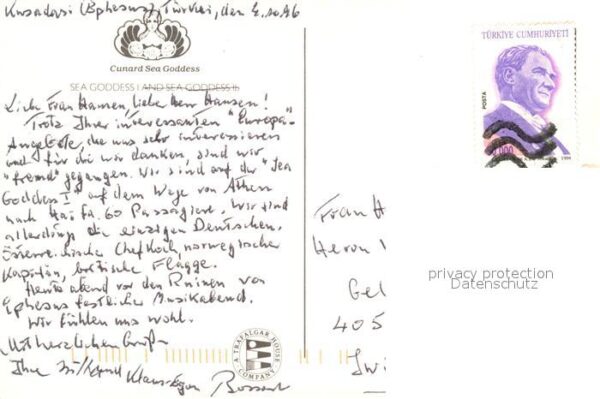 Kusadasi (Ephesus), Türkei, den 4.10.96
Cunard Sea Goddess
SEA GODDESS I AND SEA GODDESS II
Liebe Frau Hansen, lieber Herr Hansen!
Trotz Ihrer interessanten "Europa"-
Angebote, die uns sehr interessieren
und für die wir danken, sind wir
"fremd" gegangen. Wir sind auf der "Sea
Goddess I" auf dem Wege von Athen
nach Haifa. 60 Passagiere. Wir sind
allerdings die einzigen Deutschen.
Österreichische Chefkoch, norwegischer
Kapitän, britische Flagge.
Heute abend vor den Ruinen von
Ephesus festlicher Musikabend.
Wir fühlen uns wohl.
Mit herzlichen Grüßen
Ihre und Klaus-Jürgen Bossart
A TRAFALGAR HOUSE
COMPANY
TÜRKİYE CUMHURİYETİ
POSTA
000
1994
Frau H
Herrn
Gel
405
privacy protection
Datenschutz